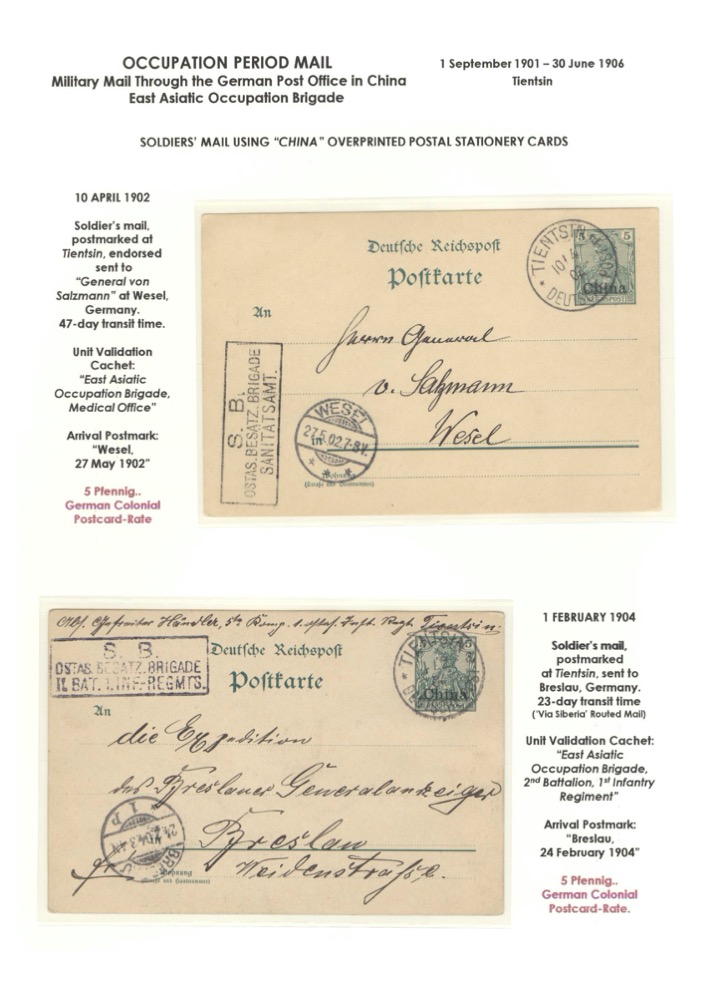 OCCUPATION PERIOD MAIL
Military Mail Through the German Post Office in China
East Asiatic Occupation Brigade
1 September 1901 – 30 June 1906
Tientsin
SOLDIERS' MAIL USING "CHINA" OVERPRINTED POSTAL STATIONERY CARDS
10 APRIL 1902
Soldier's mail,
postmarked at
Tientsin, endorsed
sent to
"General von
Salzmann" at Wesel,
Germany.
47-day transit time.
Unit Validation
Cachet:
"East Asiatic
Occupation Brigade,
Medical Office"
Arrival Postmark:
"Wesel,
27 May 1902"
5 Pfennig..
German Colonial
Postcard-Rate
Deutsche Reichspost
Postkarte
An
5 5
China
TIENTSIN
DEUTSCHE POST
Herrn General
v. Salzmann
Wesel
S. B.
OSTAS. BESATZ. BRIGADE
SANITÄTSAMT.
WESEL
27.5.02.7-8V.
Wohnung
(Straße und Hausnummer)
Abs. Gefreiter Händler, 5te Komp. 1. ostas. Inft. Regt. Tientsin.
S. B.
OSTAS. BESATZ. BRIGADE
II. BAT. 1. INF.-REGMTS.
Deutsche Reichspost
Postkarte
An
TIENTSIN
5
China
die Expedition
des Breslauer Generalanzeiger
Breslau
Weidenstraße.
Wohnung
(Straße und Hausnummer)
1 FEBRUARY 1904
Soldier's mail,
postmarked
at Tientsin, sent to
Breslau, Germany.
23-day transit time
('Via Siberia' Routed Mail)
Unit Validation Cachet:
"East Asiatic
Occupation Brigade,
2nd Battalion, 1st Infantry
Regiment"
Arrival Postmark:
"Breslau,
24 February 1904"
5 Pfennig..
German Colonial
Postcard-Rate.